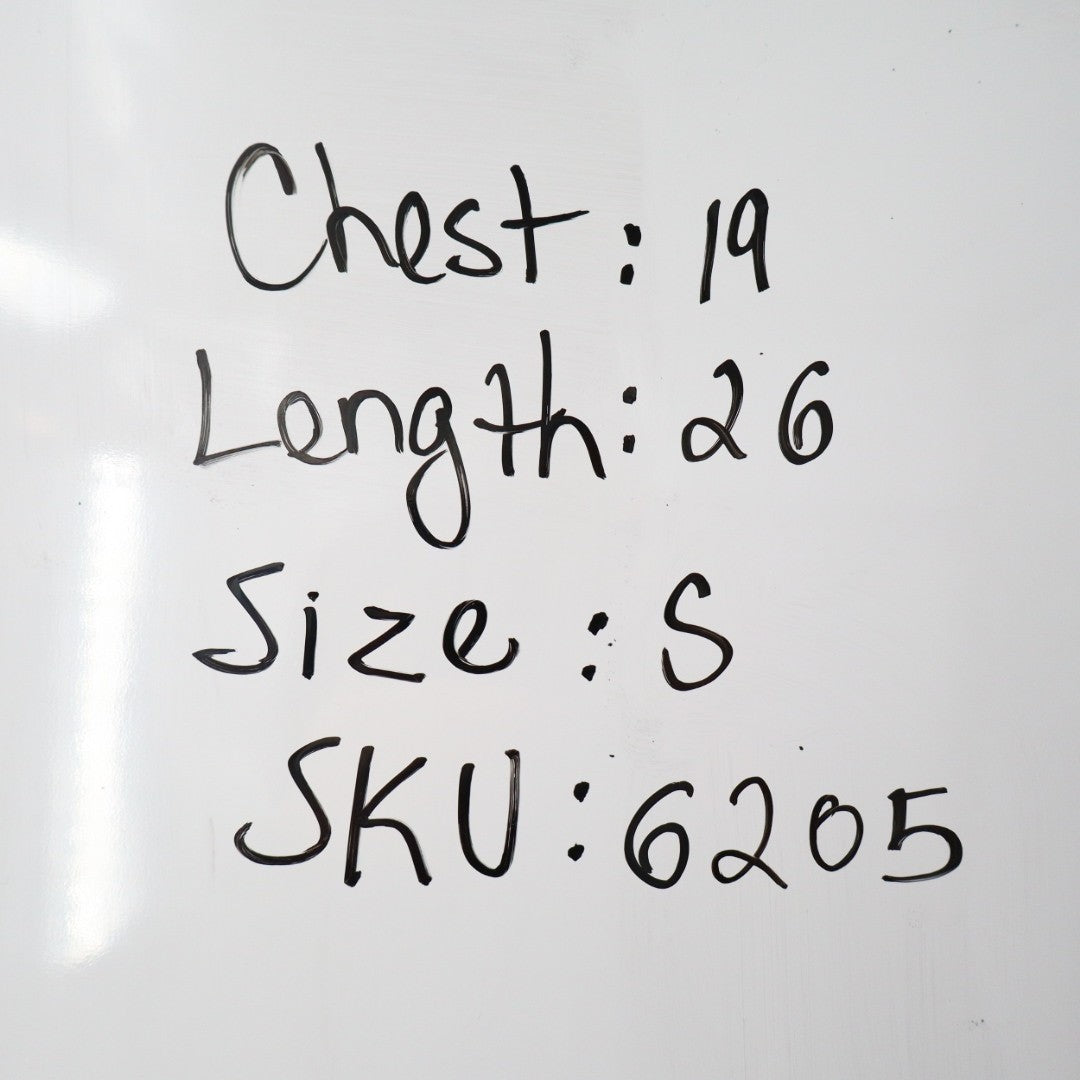 Chest: 19
Length: 26
Size: S
SKU: 6205